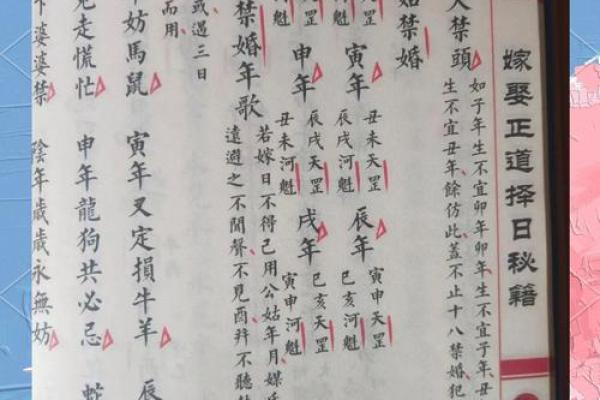 嫁娶正道择日秘籍
如子年生不宜卯年卯年生不宜子年丑
生不宜丑年餘仿此蓋不止十八禁婚犯
禁頭
禁婚
丑未天罡
寅申天罡
寅年
辰年
辰戌河魁
巳亥河魁
辰戌天罡
巳亥天罡
申年
戌年
丑未河魁
寅申河魁
天罡
河魁
若嫁日不得已用公姑年月媒
遠避之不聞聲不見酉拜不聽
禁婚年歌
或過三日
而用
妨馬鼠
寅年又定損牛羊
辰
走慌忙
申年龍狗共必忌
蛇
婆婆禁
陰年歲歲永無妨